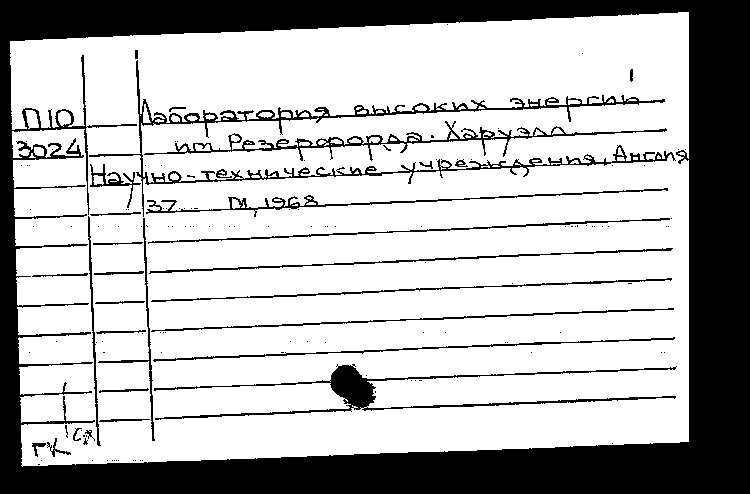 П10 Лаборатория высоких энергии
3024 им Резерфорда. Харуэлл.
Научно-технические учреждения, Англия
37 М, 1968
ГК ск